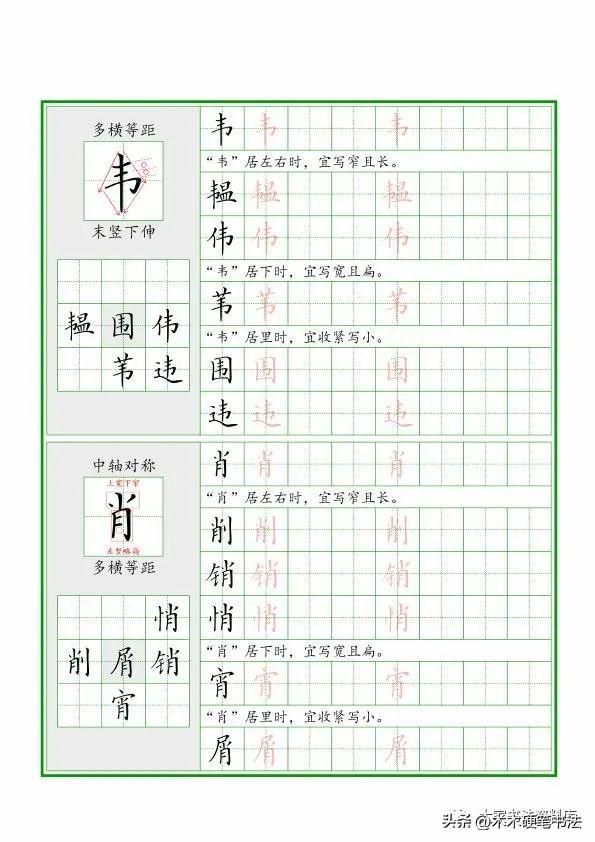 多横等距
韦
末竖下伸
韫 围 伟
苇 违
韦 韦 韦
“韦”居左右时，宜写窄且长。
韫 韫 韫
伟 伟 伟
“韦”居下时，宜写宽且扁。
苇 苇 苇
“韦”居里时，宜收紧写小。
围 围 围
违 违 违
中轴对称
上宽下窄
肖
左竖略高
多横等距
悄
削 屑 销
宵
肖 肖 肖
“肖”居左右时，宜写窄且长。
削 削 削
销 销 销
悄 悄 悄
“肖”居下时，宜写宽且扁。
宵 宵 宵
“肖”居里时，宜收紧写小。
屑 屑 屑
头条 @木木硬笔书法